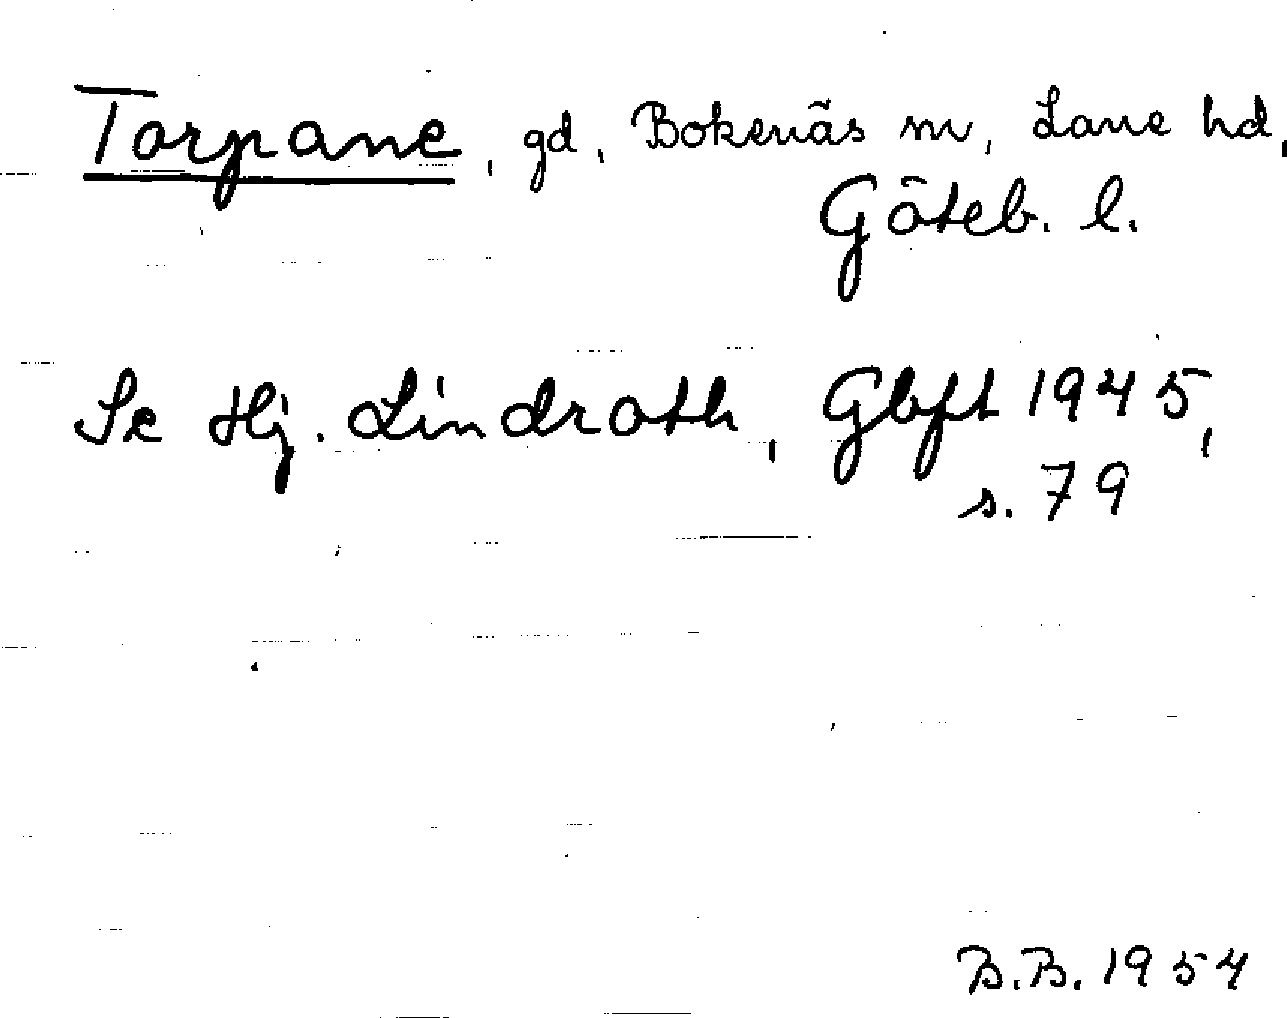 Torpane, gd, Bokenäs sn, Lane hd,
Göteb. l.
Se Hj. Lindroth, Gbft 1945,
s. 79
B.B. 1954